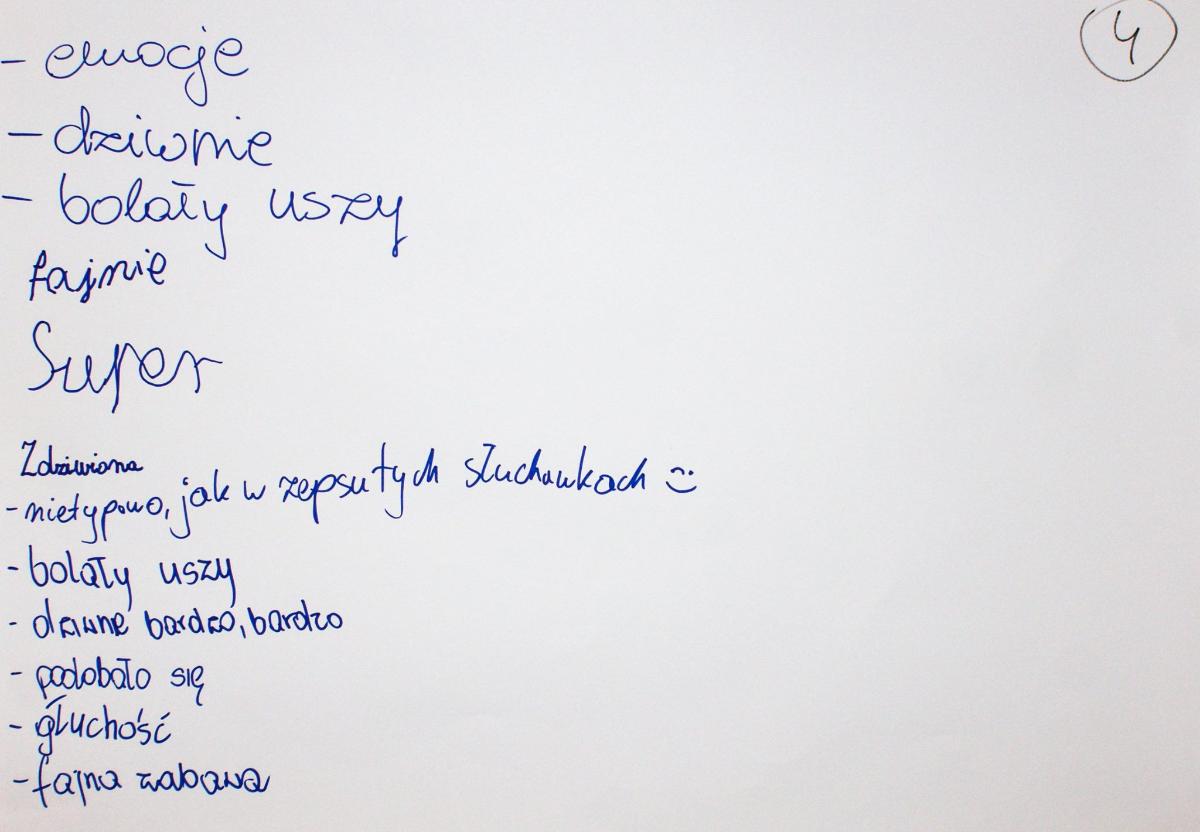 4
- emocje
- dziwnie
- bolały uszy
fajnie
Super
Zdziwiona
- nietypowo, jak w zepsutych słuchawkach :)
- bolały uszy
- dziwne bardzo, bardzo
- podobało się
- głuchość
- fajna zabawa